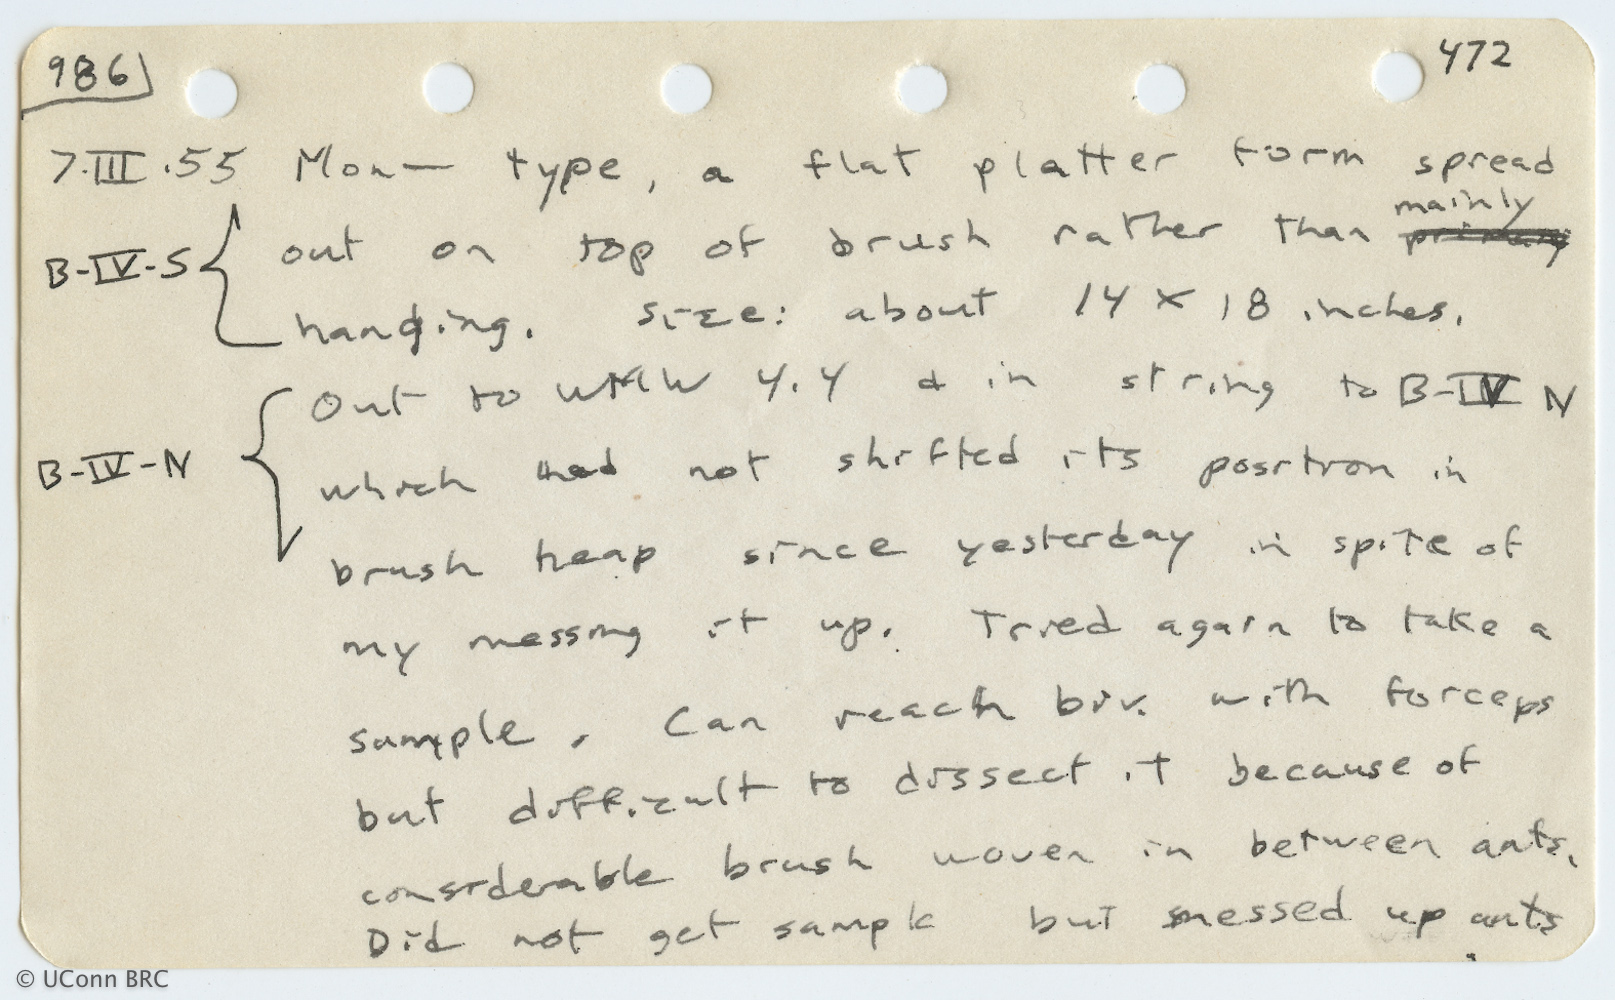 986
472
7.III.55 Mon— type, a flat platter form spread
mainly
B-IV-S out on top of brush rather than primary
hanging. Size: about 14 x 18 inches.
Out to WMW 4.4 & in string to B-IV N
B-IV-N which had not shifted its position in
brush heap since yesterday in spite of
my messing it up. Tried again to take a
sample. Can reach biv. with forceps
but difficult to dissect it because of
considerable brush woven in between ants.
Did not get sample but messed up ants
© UConn BRC